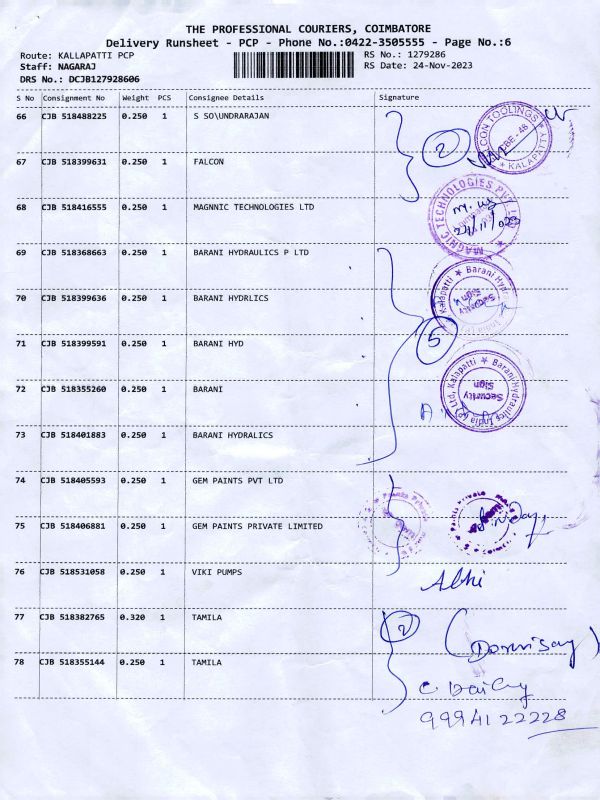 THE PROFESSIONAL COURIERS, COIMBATORE
Delivery Runsheet - PCP - Phone No.:0422-3505555 - Page No.:6
Route: KALLAPATTI PCP
RS No.: 1279286
Staff: NAGARAJ
RS Date: 24-Nov-2023
DRS No.: DCJB127928606
S No Consignment No Weight PCS Consignee Details Signature
66 CJB 518488225 0.250 1 S SO\UNDRARAJAN
67 CJB 518399631 0.250 1 FALCON
2
68 CJB 518416555 0.250 1 MAGNNIC TECHNOLOGIES LTD
MAGNIC TECHNOLOGIES PVT. LTD
69 CJB 518368663 0.250 1 BARANI HYDRAULICS P LTD
70 CJB 518399636 0.250 1 BARANI HYDRLICS
Kalapatti ★ Barani Hydra
Security
Sign
71 CJB 518399591 0.250 1 BARANI HYD
5
72 CJB 518355260 0.250 1 BARANI
Barani Hydraulics India (P) Ltd, Kalapatti ★
Security
Sign
73 CJB 518401883 0.250 1 BARANI HYDRALICS
74 CJB 518405593 0.250 1 GEM PAINTS PVT LTD
75 CJB 518406881 0.250 1 GEM PAINTS PRIVATE LIMITED
76 CJB 518531058 0.250 1 VIKI PUMPS
Abhi
77 CJB 518382765 0.320 1 TAMILA
2
78 CJB 518355144 0.250 1 TAMILA
9994122228